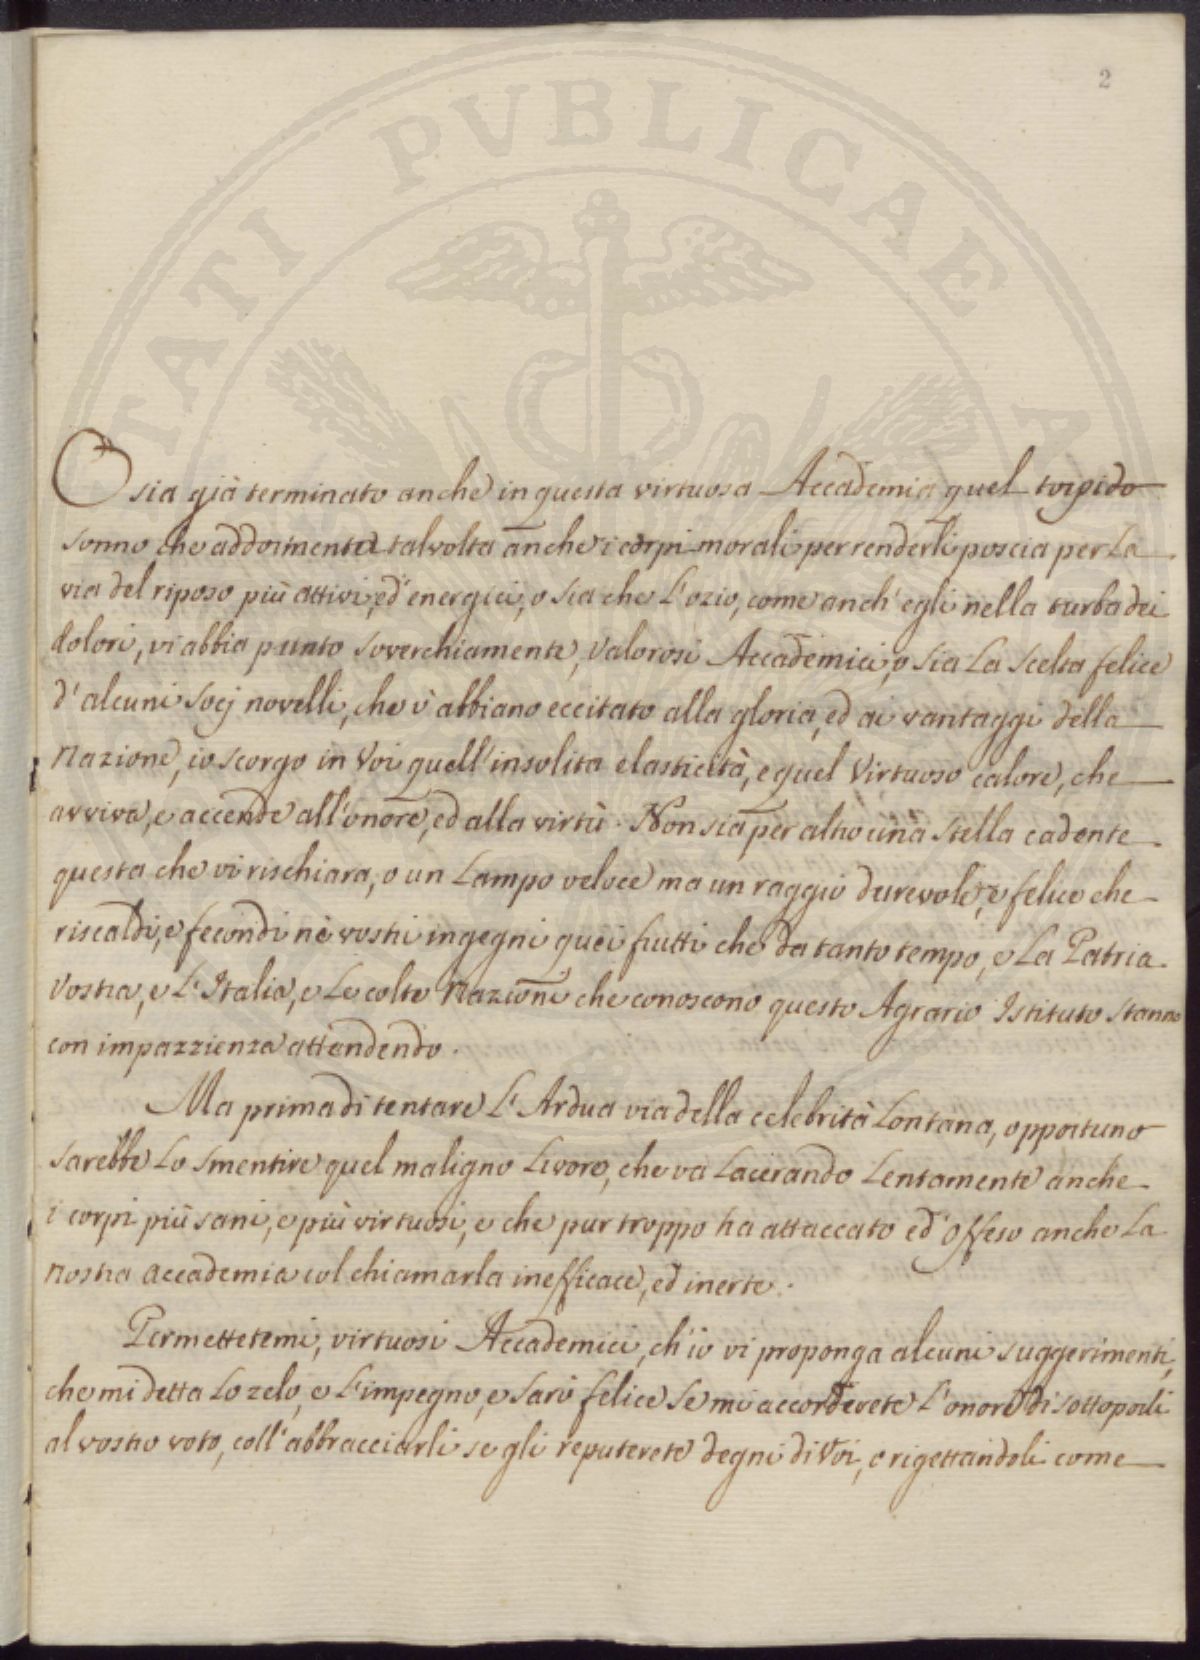 2
TATI PVBLICAE A
O sia già terminato anche in questa virtuosa Accademia quel torpido
sonno che addormenta talvolta anche i corpi morali per renderli poscia per La
via del riposo più attivi, ed energici, o sia che L'ozio, come anch'egli nella turba dei
dolori, vi abbia punto soverchiamente, Valorosi Accademici, o sia La scelta felice
d'alcuni socj novelli, che v'abbiano eccitato alla gloria, ed ai vantaggi della
Nazione, io scorgo in Voi quell'insolita elasticità, e quel Virtuoso calore, che
avviva, e accende all'onore, ed alla virtù. Non sia per altro una stella cadente
questa che vi rischiara, o un Lampo veloce ma un raggio durevole, e felice che
riscaldi, e fecondi ne vostri ingegni quei frutti che da tanto tempo, e La Patria
Vostra, e L'Italia, e Le colte Nazioni che conoscono questo Agrario Istituto stanno
con impazzienza attendendo.
Ma prima di tentare L'Ardua via della celebrità Lontana, opportuno
sarebbe Lo smentire quel maligno Livore, che va Lacerando Lentamente anche
i corpi più sani, e più virtuosi, e che pur troppo ha attaccato ed offeso anche La
Nostra Accademia col chiamarla inefficace, ed inerte.
Permettetemi, virtuosi Accademici, ch'io vi proponga alcuni suggerimenti,
che mi detta Lo zelo, e L'impegno, e sarò felice se mi accorderete L'onore di sottoporli
al vostro voto, coll'abbracciarli se gli reputerete degni di Voi, o rigettandoli come